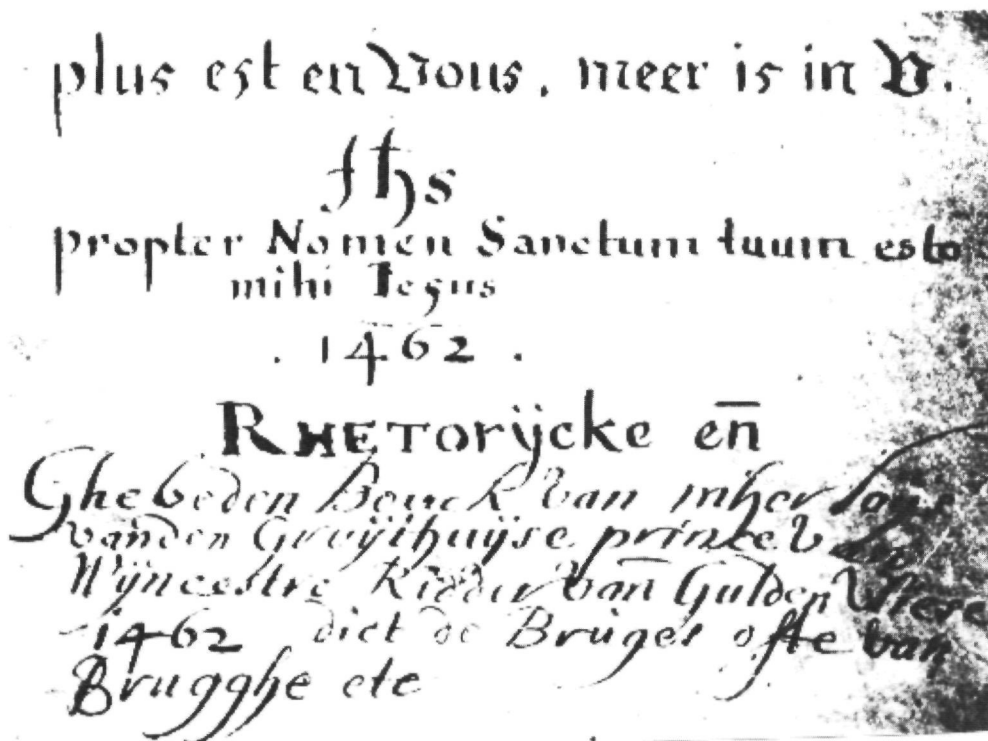 plus est en Vous, meer is in V.
Jhs
propter Nomen Sanctum tuum esto
mihi Jesus
. 1462 .
RHETorijcke en̄
Ghebeden Bouck van mher Loys
vanden Gruijthuijse prinse van
Wijncestre Ridder van Gulden Vliese
1462 dict de Bruges ofte van
Brugghe etc